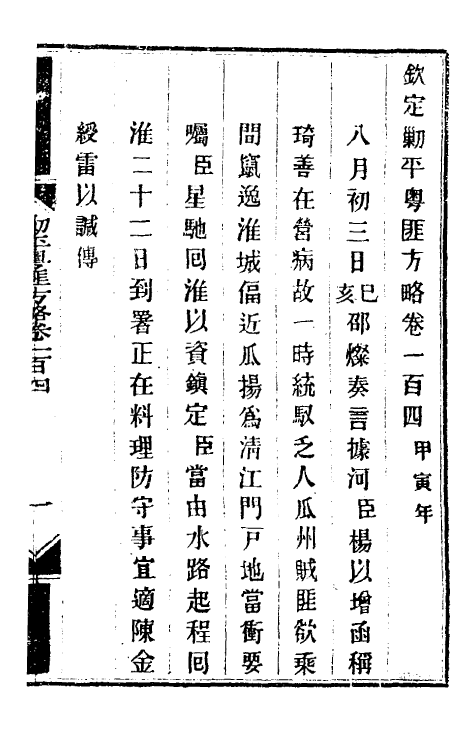 欽定剿平粤匪方略卷一百四 甲寅年
八月初三日己亥邵燦奏言據河臣楊以增函稱
琦善在營病故一時統馭乏人瓜州賊匪欲乘
間竄逸淮城偪近瓜揚為清江門戸地當衝要
囑臣星馳囘淮以資鎮定臣當由水路起程囘
淮二十二日到署正在料理防守事宜適陳金
綬雷以諴傳
剿平粤匪方略卷一百四
一